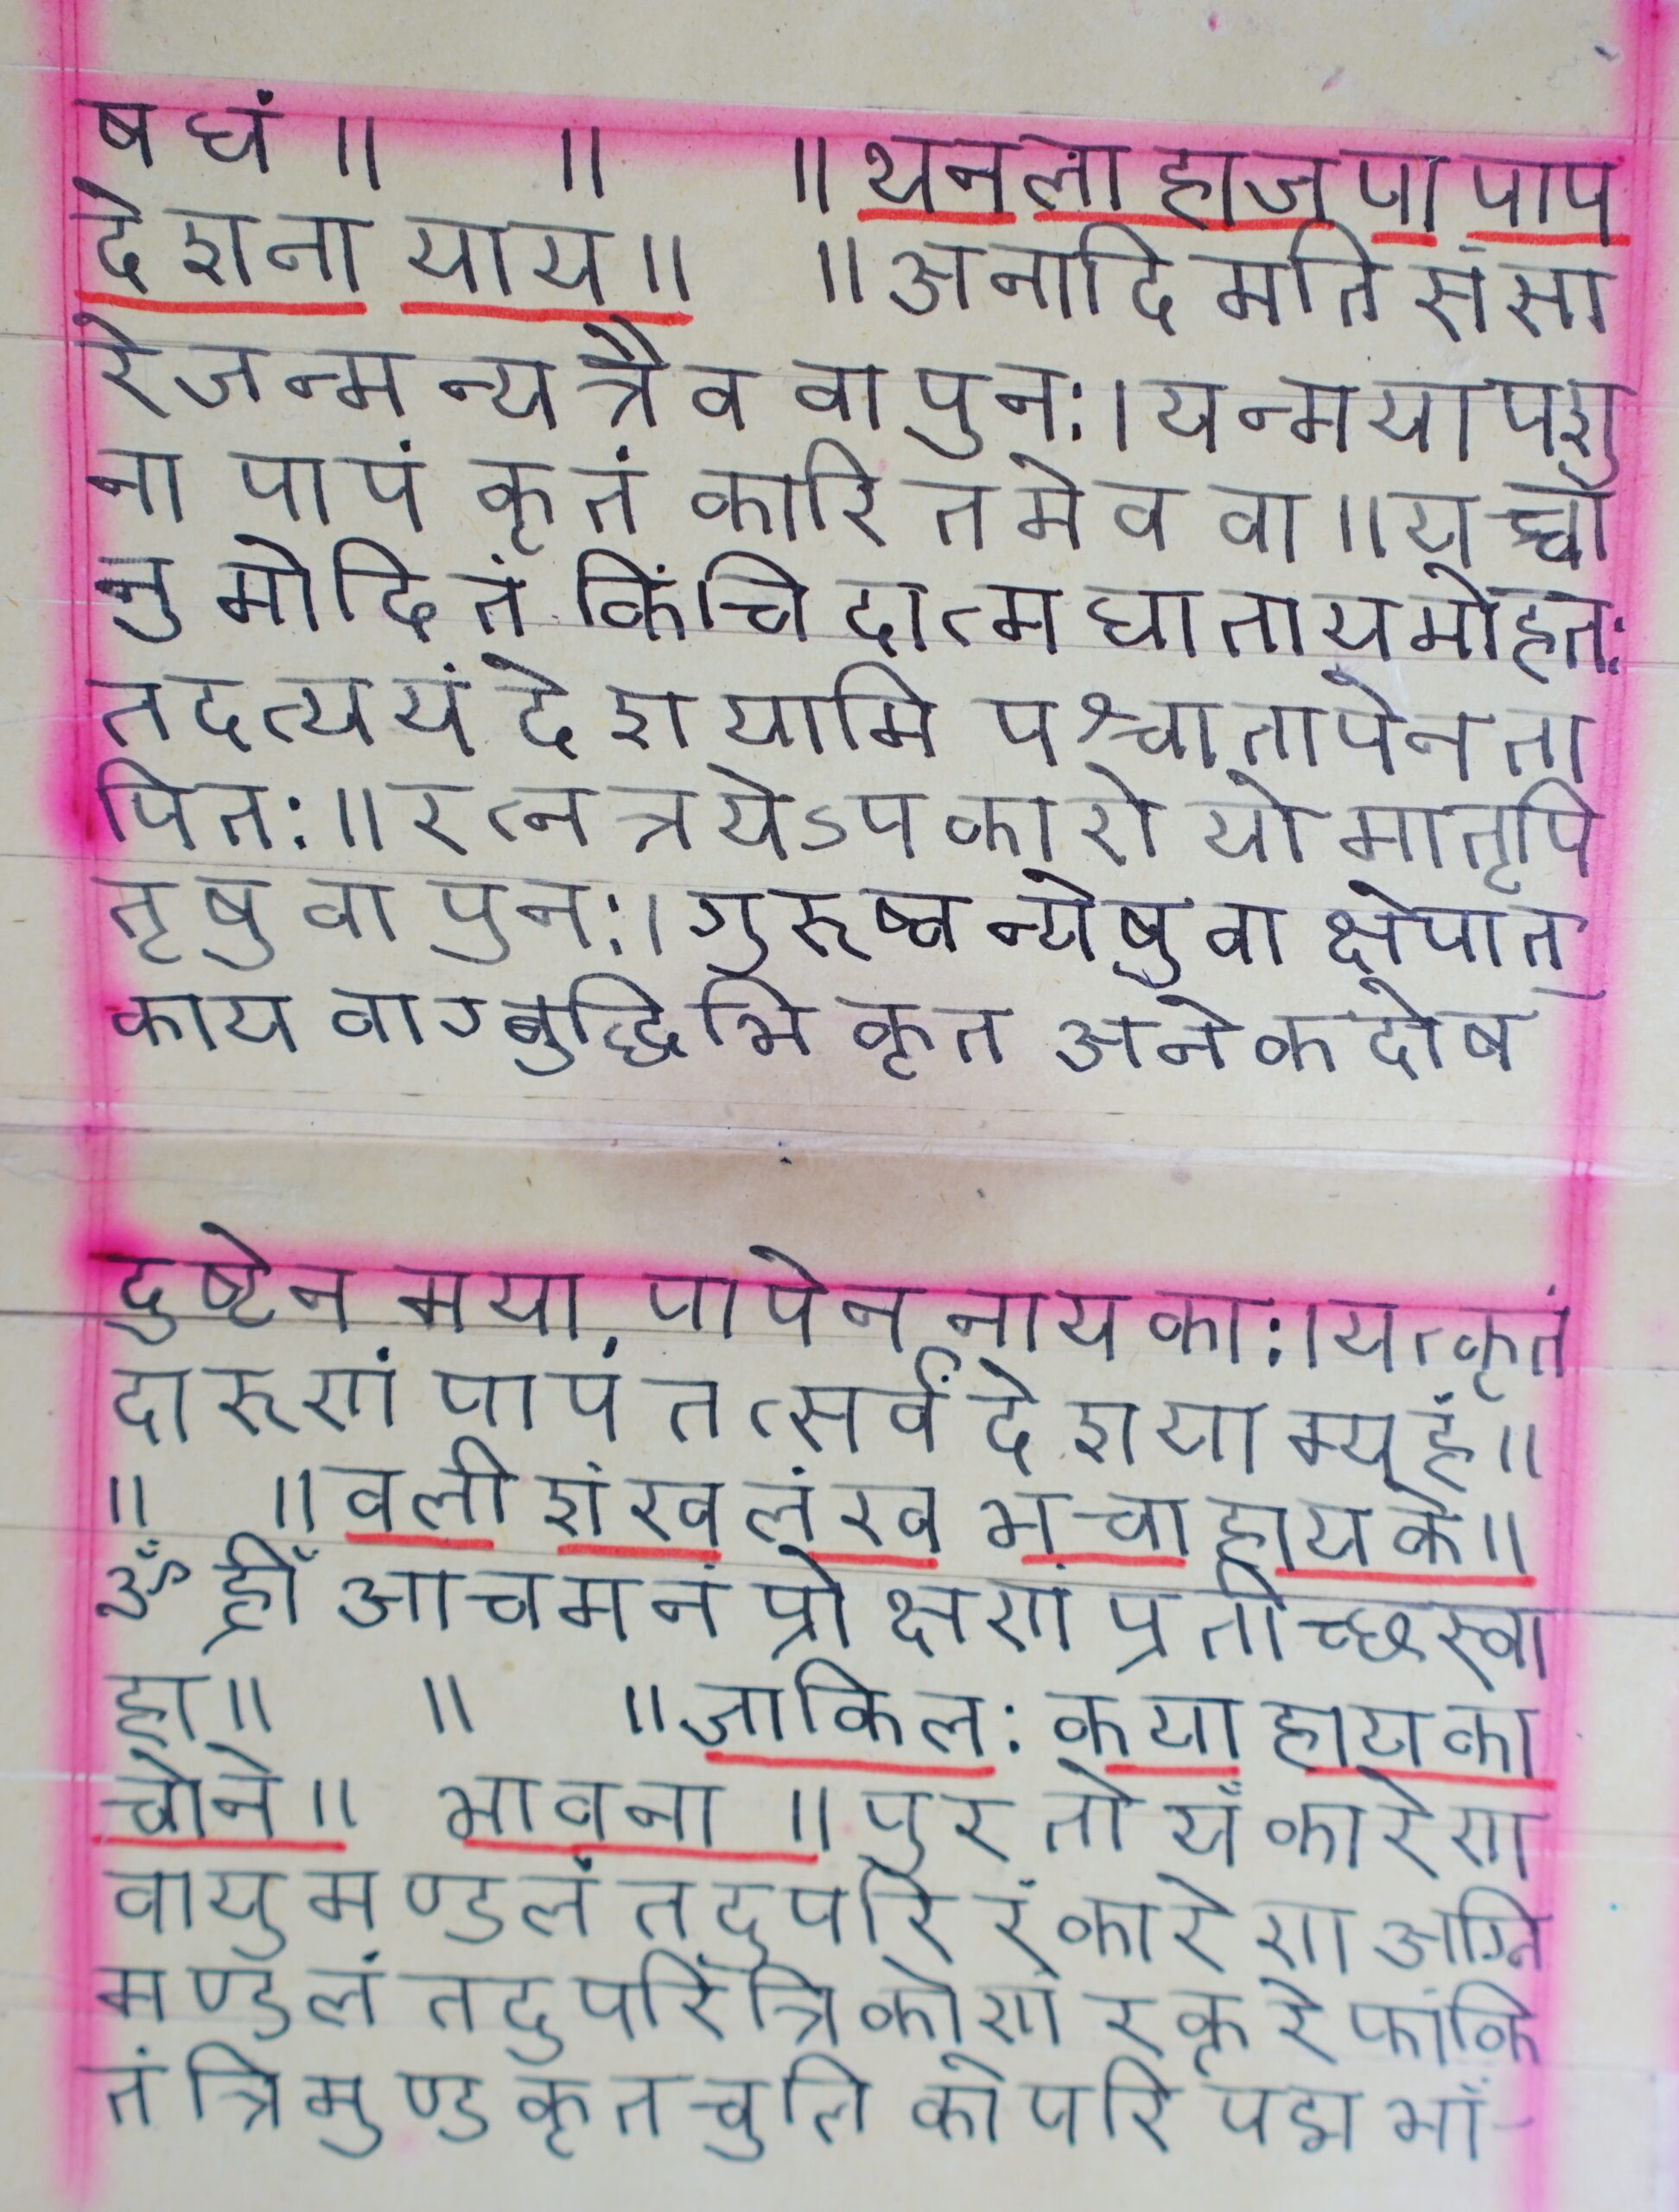 षधं ॥ ॥ ॥ थनला हाज पा पाप
देशना याय ॥ ॥ अनादि मति संसा
रे जन्मन्यत्रैव वा पुनः। यन्मया पशु
ना पापं कृतं कारितमेव वा ॥ यच्चा
नुमोदितं किंचिदात्मघाताय मोहतः
तदत्ययं देशयामि पश्चातापेन ता
पितः ॥ रत्नत्रयेऽपकारो यो मातृपि
तृषु वा पुनः। गुरुष्वन्येषु वा क्षेपात्
काय वाग्बुद्धिभि कृत अनेक दोष
दुष्टेन मया पापेन नायकाः। यत्कृतं
दारुणं पापं तत्सर्वं देशयाम्यहं ॥
॥ ॥ वली शंख लंख भचा हायके ॥
ॐ ह्रीँ आचमनं प्रोक्षणं प्रतीच्छ स्वा
हा ॥ ॥ ॥ जाकिलः कया हायका
चोने ॥ भावना ॥ पुरतो यँकारेण
वायुमण्डलं तदुपरि रंकारेण अग्नि
मण्डलं तदुपरि त्रिकोणं रक्त रेफांकि
तं त्रिमुण्डकृत चुलिकोपरि पद्मभां-